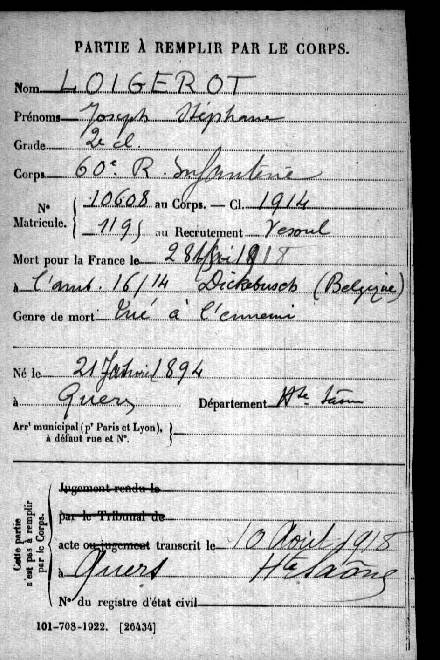 PARTIE À REMPLIR PAR LE CORPS.
Nom LOIGEROT
Prénoms Joseph Stéphane
Grade 2e cl.
Corps 60e R. Infanterie
N° Matricule. { 10608 au Corps. — Cl. 1914
1195 au Recrutement Vesoul
Mort pour la France le 28 1918
à l'amb. 16/14 Dickebusch (Belgique)
Genre de mort Tué à l'ennemi
Né le 21 1894
à Quers Département Hte Saône
Arrt municipal (pr Paris et Lyon), à défaut rue et N°. {
Cette partie n'est pas à remplir par le Corps.
Jugement rendu le
par le Tribunal de
acte ou jugement transcrit le 10 Août 1918
à Quers Hte Saône
N° du registre d'état civil
101-708-1922. [26434]